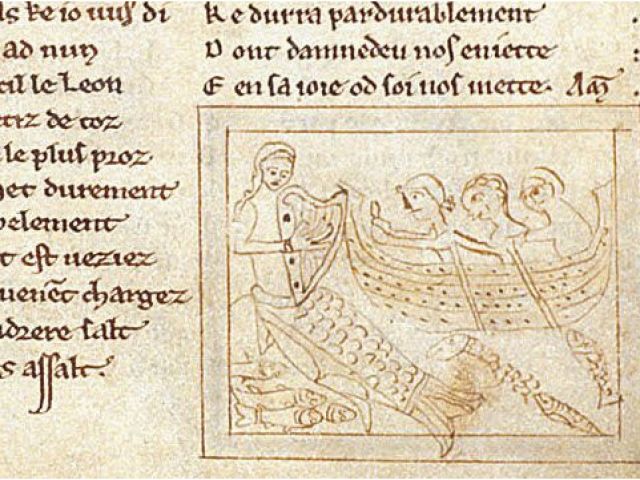 ls ke io uus di
ad nun
cil le Leon
de toz
le plus proz
et durement
pelement
t est ueziez
uenēt chargez
drere salt
s assalt.
Ke durra pardurablement
D ont damnedeu nos eniette
E en sa ioie od soi nos mette. Am̄